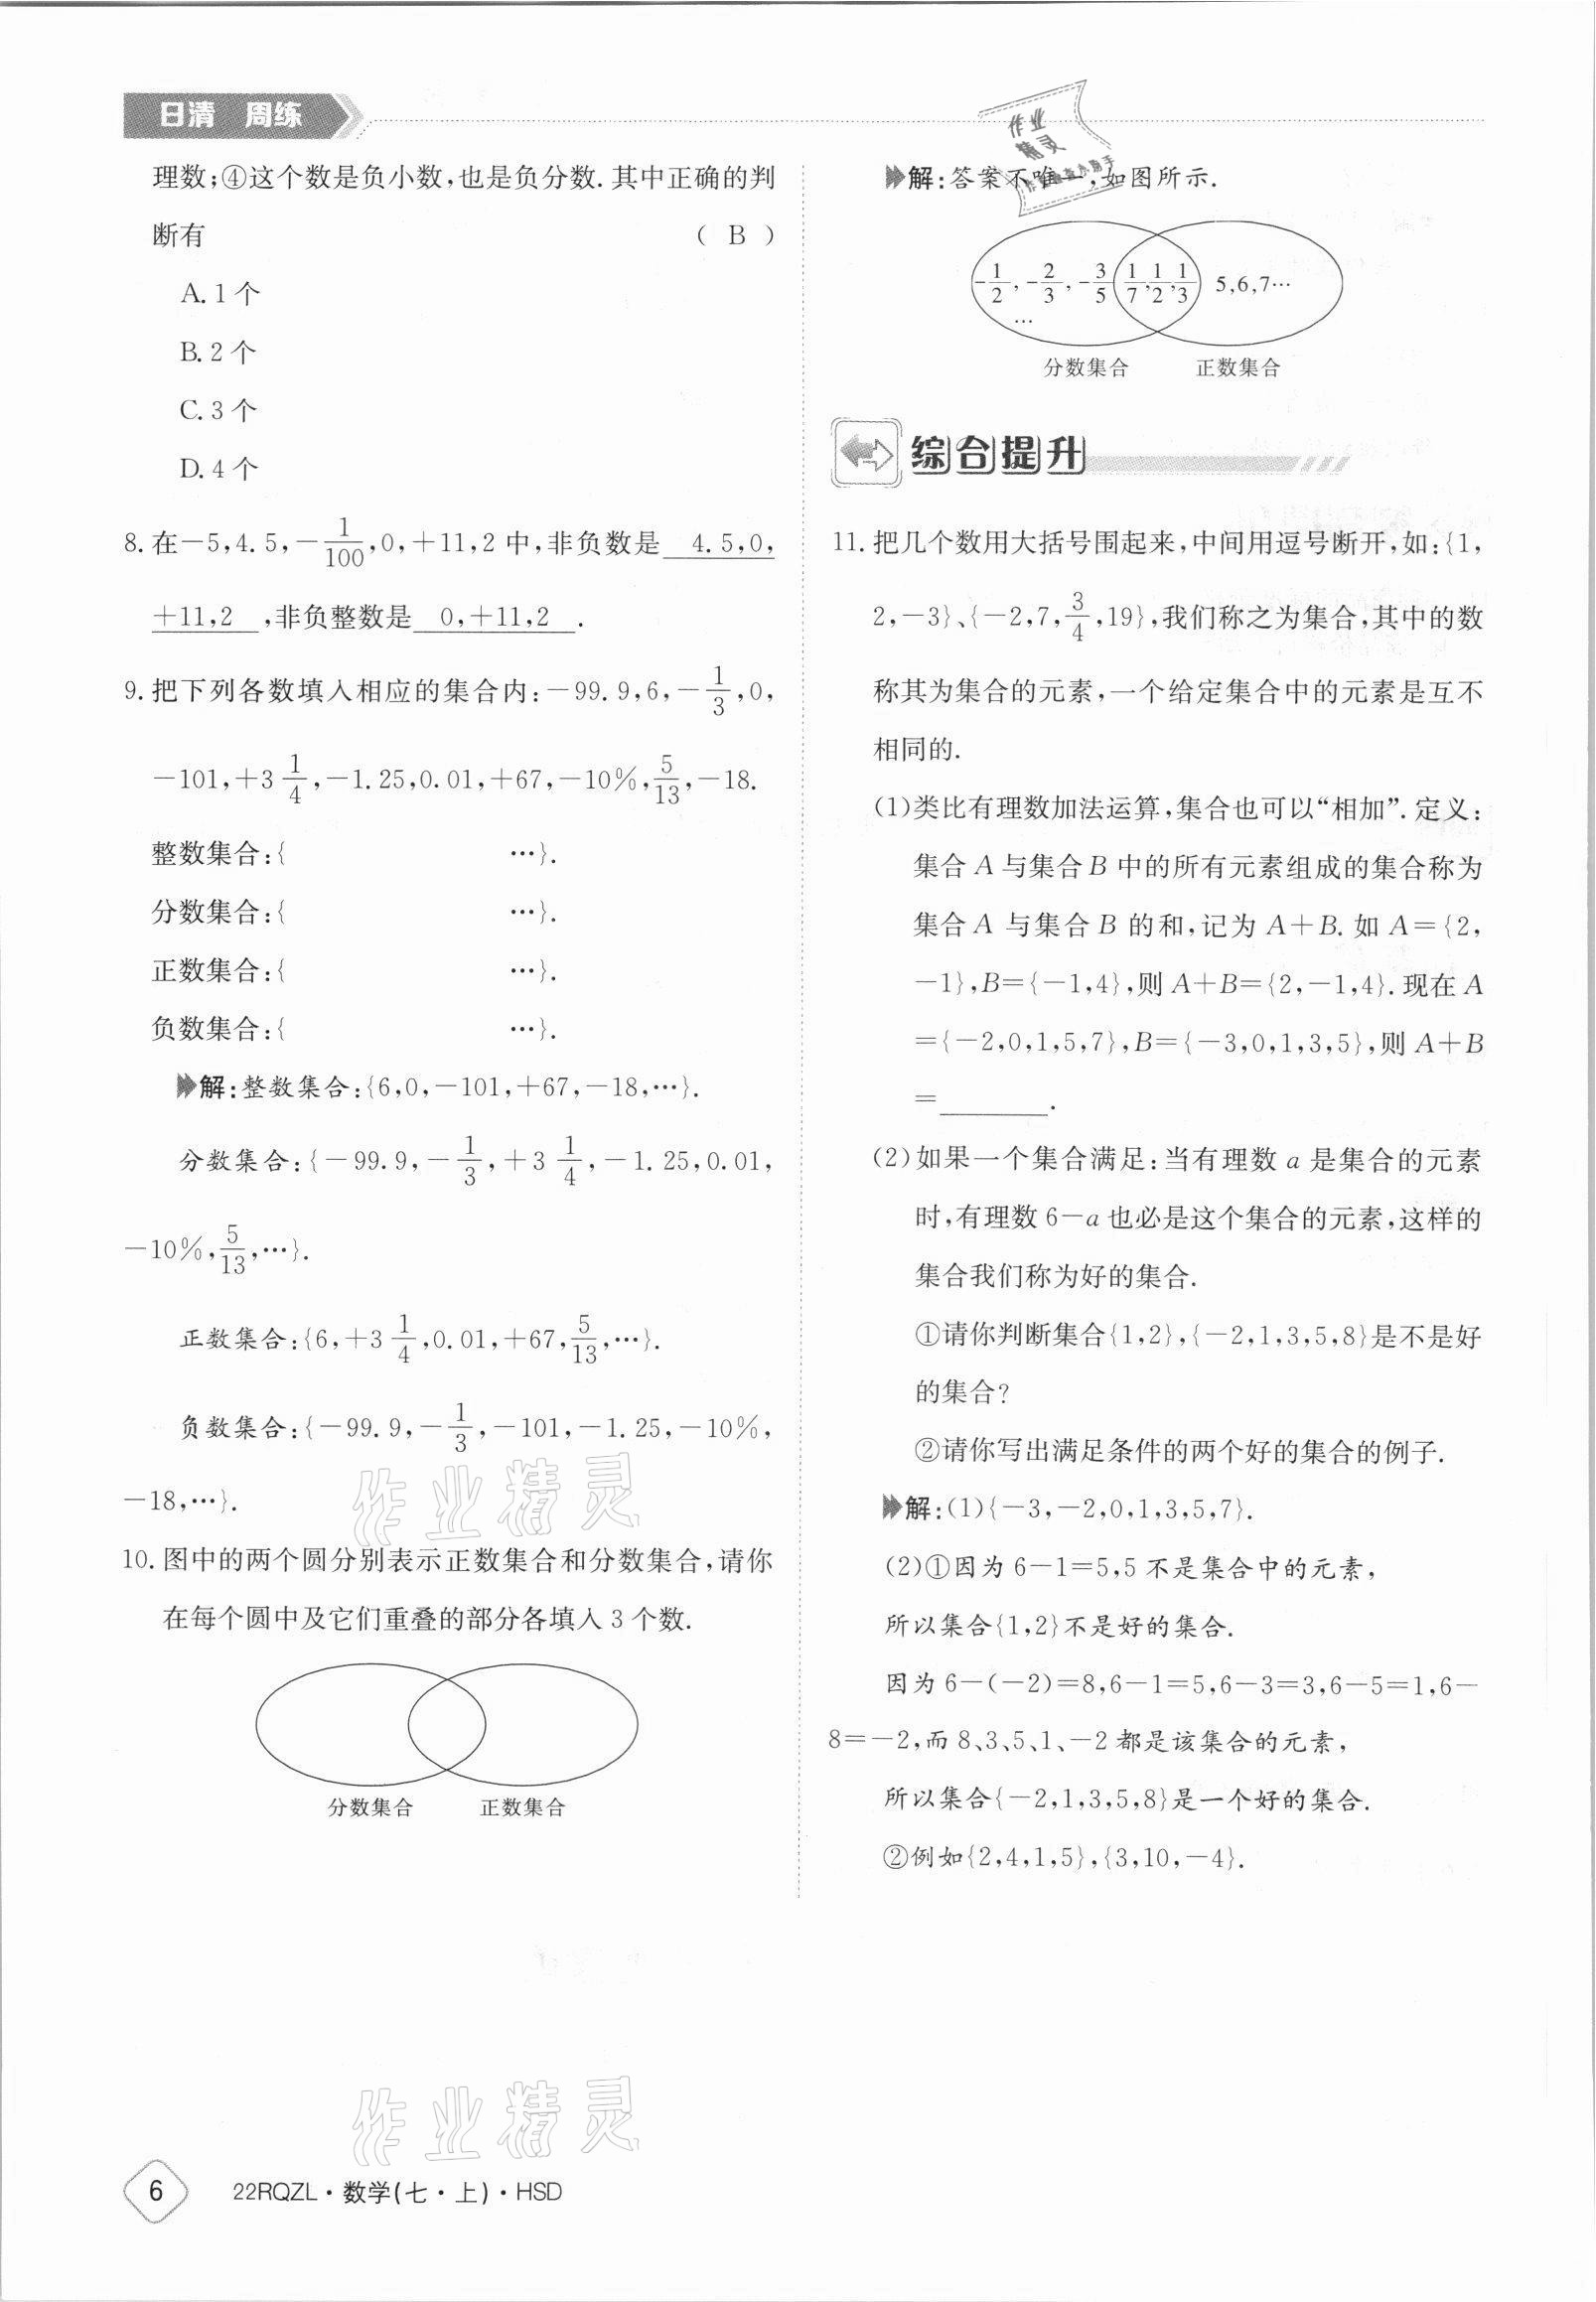 日清 周练
理数;④这个数是负小数,也是负分数.其中正确的判
断有 ( B )
A. 1个
B. 2个
C. 3个
D. 4个
8. 在-5,4.5,-1/100,0,+11,2中,非负数是 4.5,0,
+11,2 ,非负整数是 0,+11,2 .
9. 把下列各数填入相应的集合内:-99.9,6,-1/3,0,
-101,+3 1/4,-1.25,0.01,+67,-10%,5/13,-18.
整数集合:{ …}.
分数集合:{ …}.
正数集合:{ …}.
负数集合:{ …}.
解:整数集合:{6,0,-101,+67,-18,…}.
分数集合:{-99.9,-1/3,+3 1/4,-1.25,0.01,
-10%,5/13,…}.
正数集合:{6,+3 1/4,0.01,+67,5/13,…}.
负数集合:{-99.9,-1/3,-101,-1.25,-10%,
-18,…}.
10. 图中的两个圆分别表示正数集合和分数集合,请你
在每个圆中及它们重叠的部分各填入3个数.
分数集合 正数集合
解:答案不唯一,如图所示.
-1/2,-2/3,-3/5 1/7,1/2,1/3 5,6,7…
…
分数集合 正数集合
综合提升
11. 把几个数用大括号围起来,中间用逗号断开,如:{1,
2,-3}、{-2,7,3/4,19},我们称之为集合,其中的数
称其为集合的元素,一个给定集合中的元素是互不
相同的.
(1)类比有理数加法运算,集合也可以“相加”.定义:
集合A与集合B中的所有元素组成的集合称为
集合A与集合B的和,记为A+B.如A={2,
-1},B={-1,4},则A+B={2,-1,4}.现在A
={-2,0,1,5,7},B={-3,0,1,3,5},则A+B
=________.
(2)如果一个集合满足:当有理数a是集合的元素
时,有理数6-a也必是这个集合的元素,这样的
集合我们称为好的集合.
①请你判断集合{1,2},{-2,1,3,5,8}是不是好
的集合?
②请你写出满足条件的两个好的集合的例子.
解:(1){-3,-2,0,1,3,5,7}.
(2)①因为6-1=5,5不是集合中的元素,
所以集合{1,2}不是好的集合.
因为6-(-2)=8,6-1=5,6-3=3,6-5=1,6-
8=-2,而8、3、5、1、-2都是该集合的元素,
所以集合{-2,1,3,5,8}是一个好的集合.
②例如{2,4,1,5},{3,10,-4}.
作业
精灵
作业精灵
作业精灵
6 22RQZL·数学(七·上)·HSD